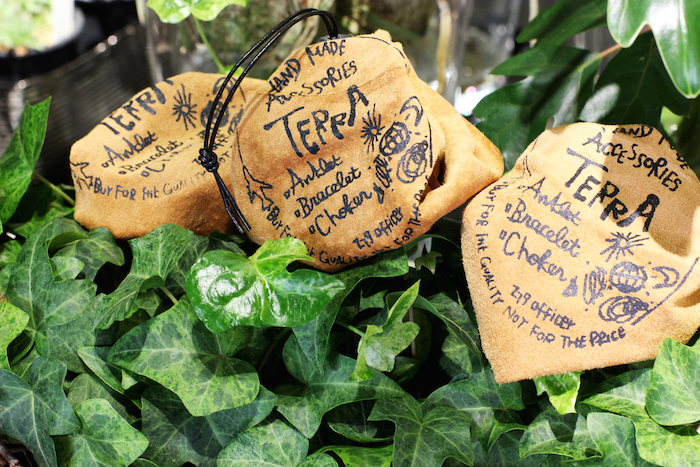 TERRA
Anklet
Bracelet
Choker
BUY FOR THE QUALITY
HAND MADE
ACCESSORIES
TERRA
Anklet
Bracelet
Choker
BUY FOR THE QUALITY NOT FOR THE PRICE
HAND MADE
ACCESSORIES
TERRA
Anklet
Bracelet
Choker
BUY FOR THE QUALITY NOT FOR THE PRICE